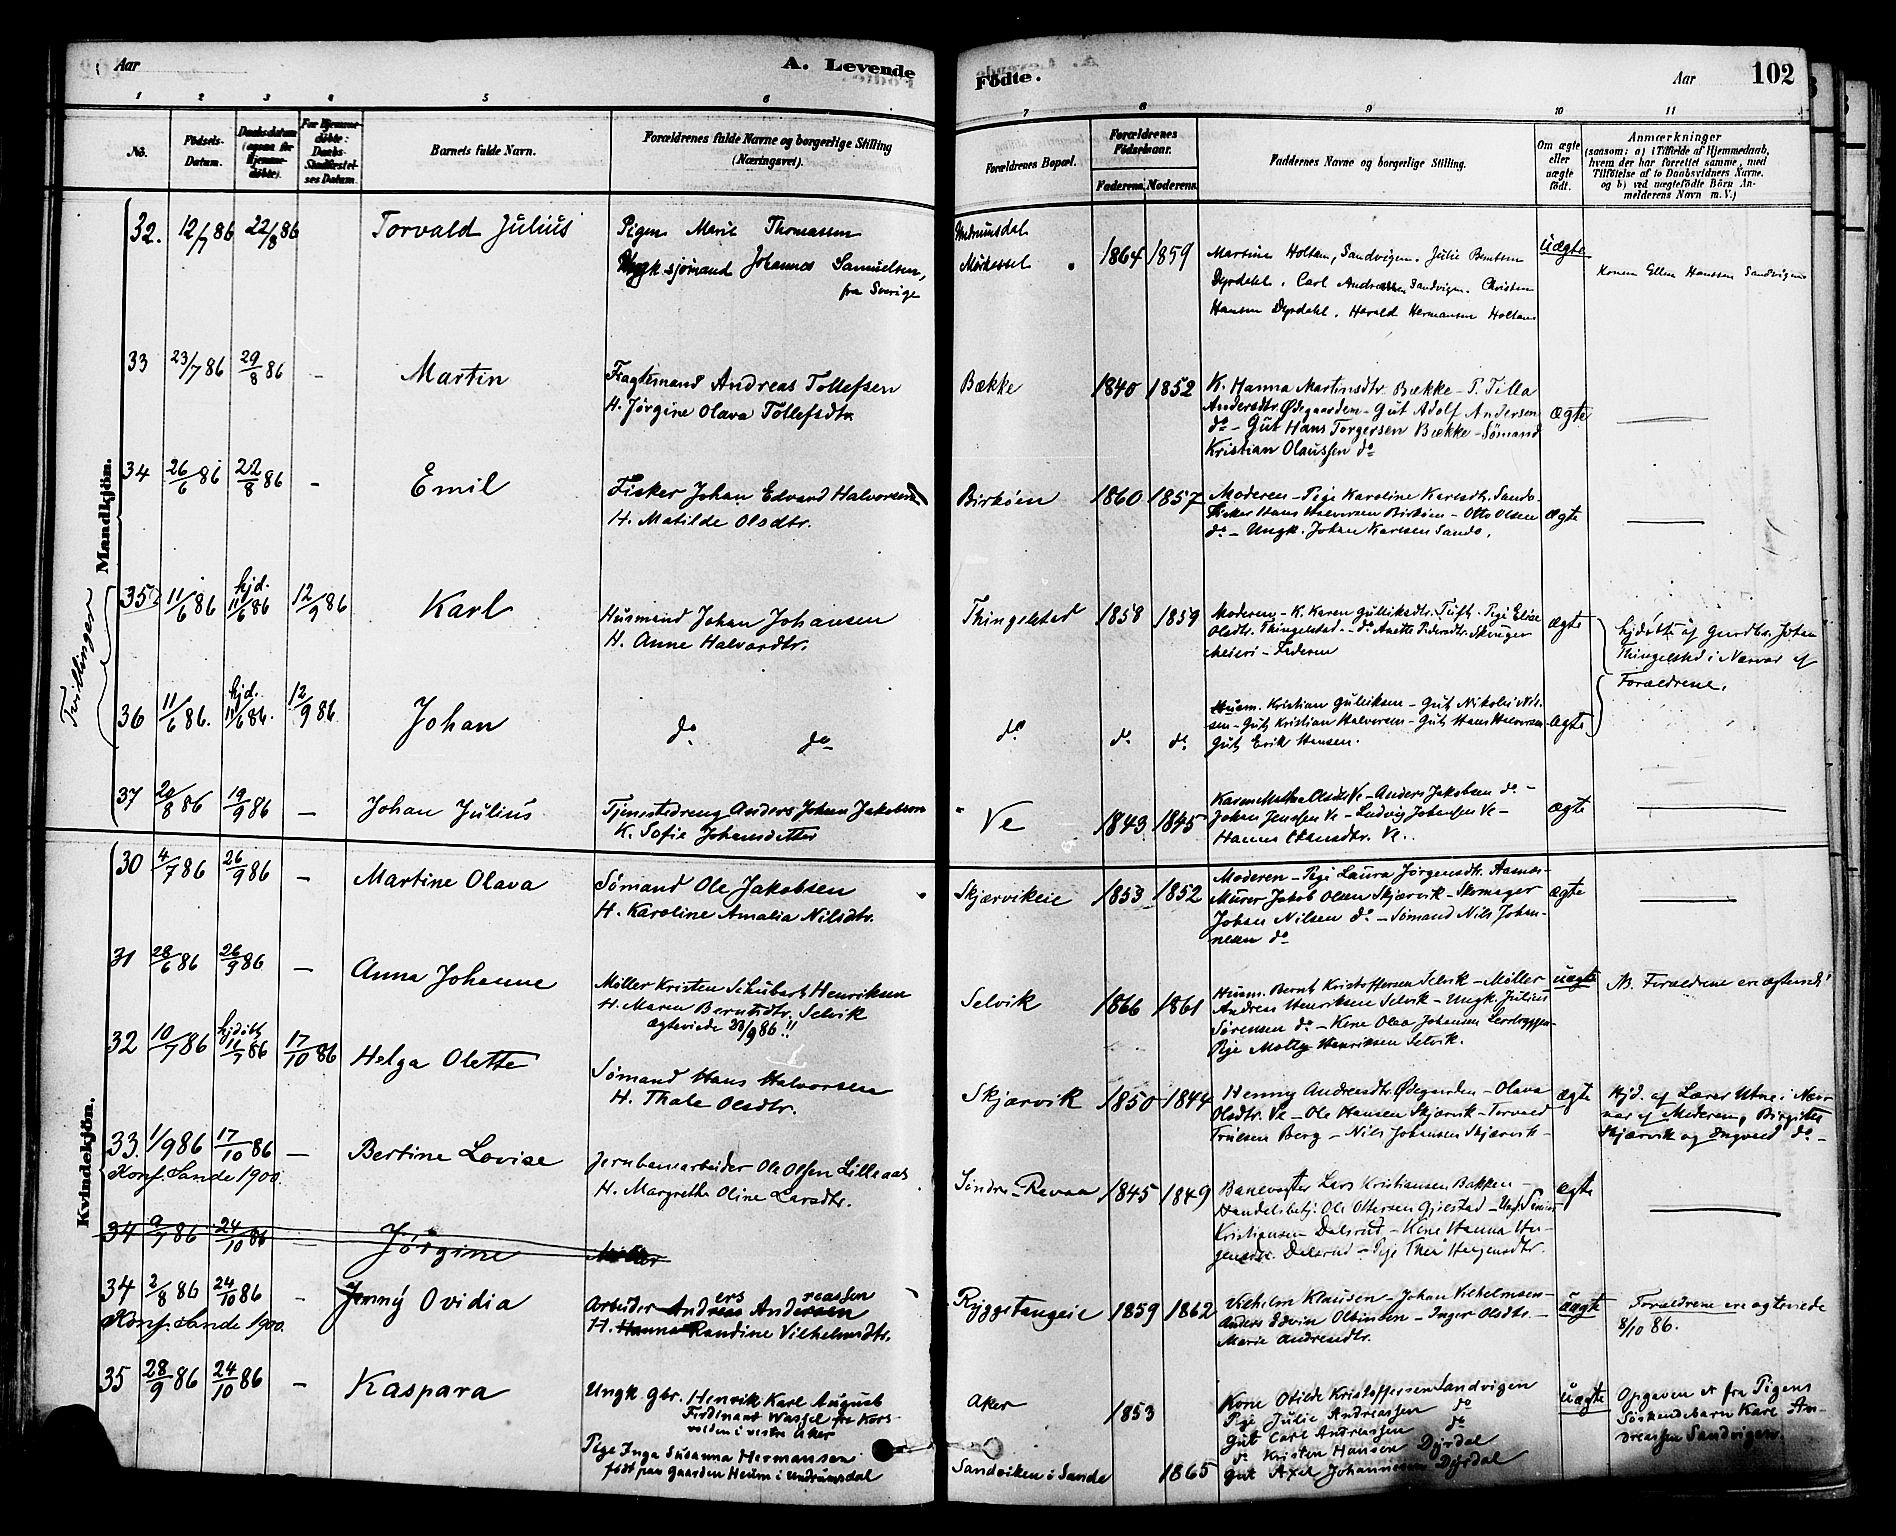 Aar
A. Levende
Födte.
Aar
102
1 2 3 4 5 6 7 8 9 10 11
No.
Födsels-Datum.
Daabsdatum (ogsaa for Hjemme-döbte).
For Hjemme-döbte: Daabs-Stadfæstel-ses Datum.
Barnets fulde Navn.
Forældrenes fulde Navne og borgerlige Stilling (Næringsvei).
Forældrenes Bopæl.
Forældrenes Födselsaar.
Faderens. Moderens.
Faddernes Navne og borgerlige Stilling.
Om ægte eller uægte födt.
Anmærkninger
(saasom: a) i Tilfælde af Hjemmedaab,
hvem der har forrettet samme, med
Tilföielse af to Daabsvidners Navne,
og b) ved uægtefödte Börn An-
melderens Navn m. V.)
Mandkjön.
32. 12/7 86 22/8 86 Torvald Julius
Pigen Marie Thomassen
Ungk. sjømand Johannes Samuelsen,
fra Sverige
Undrumsdal
1864 1859
Martine Holtan, Sandvigen. Julie Berntsen
Dyrdahl. Carl Andreassen Sandvigen. Christen
Hansen Dyrdahl. Harald Hermansen Holtan
uægte
Konen Ellen Hanssen Sandvigen
33 23/7 86 29/8 86 - Martin
Fragtemand Andreas Tollefsen
H. Jørgine Olava Tollefsdtr.
Bække 1840 1852
K. Hanna Martinsdtr. Bække - P. Tilla
Andersdtr. Ødegaarden - Gut Adolf Andersen
do - Gut Hans Torgersen Bække - Sømand
Kristian Olaussen do
ægte
34 26/6 86 22/8 86 - Emil
Fisker Johan Edvard Halvorsen
H. Matilde Olsdtr.
Birkøen 1860 1857
Moderen - Pige Karoline Karlsdtr. Sande
Fisker Hans Halvorsen Birkøen - Otto Olsen
do - Ungk. Johan Karlsen Sande.
ægte
Tvillinger
35 11/6 86 hjd. 11/6 86 12/9 86 Karl
Husmand Johan Johansen
H. Anne Halvordtr.
Thingelstad 1858 1859
Moderen - K. Karen Gulliksdtr. Tuft - Pige Elise
Olsdtr. Thingelstad - do Anette Pedersdtr. Skouger
Meieri - Faderen
ægte
hjdøbt af Gaardbr. Johan
Thingelstad i Nærvær af
Forældrene.
36 11/6 86. hjd. 11/6 86. 12/9 86 Johan
do do
do do do
Husm. Kristian Gulliksen - Gut Nikolai Nil-
sen - Gut Kristian Halvorsen - Gut Hans Halvorsen
Gut Erik Hansen.
ægte
37 20/8 86 19/9 86 - Johan Julius
Tjenestedreng Anders Johan Jakobsen
K. Sofie Johansdatter
Ve 1843 1845
Karen Mathea Olsdtr. Ve - Anders Jakobsen do -
Johan Jenssen Ve - Ludvig Johansen Ve -
Hanna Ve.
ægte
Kvindekjön.
30 4/7 86 26/9 86 - Martine Olava
Sømand Ole Jakobsen
H. Karoline Amalia Nilsdtr.
Skjærvikeie 1853 1852
Moderen - Pige Laura Jørgensdtr.
Murer Jakob Olsen Skjærvik - Skomager
Johan Nilsen do - Sømand Nils Johan-
nesen do
ægte
31 28/6 86 26/9 86 - Anna Johanne
Møller Kristen Schubart Henriksen
H. Maren Berntsdtr. Selvik
Ægteviede 23/9 86!!
Selvik 1866 1861
Husm. Bernt Kristoffersen Selvik - Møller
Andreas Henriksen Selvik - Ungk. Julius
Sørensen do - Kone Olea Johansen
Pige Molly Henriksen Selvik.
uægte
NB. Forældrene er ægteviede!
32 10/7 86 hjdøbt 11/7 86 17/10 86 Helga Olette
Sømand Hans Halvorsen
H. Thale Olsdtr.
Skjærvik 1850 1844
Henny Andreasdtr. Ødegaarden - Olava
Olsdtr. Ve - Ole Hansen Skjærvik - Torvald
Trulsen Berg - Nils Johansen Skjærvik -
ægte
Hjd. af Lærer Utne i Nær-
vær af Moderen, Birgitte
Skjærvik og Ingvald do -
33. 1/9 86 17/10 86 - Bertine Lovise
Konf. Sande 1900.
Jernbanearbeider Ole Olsen Lilleaas
H. Margrethe Oline Larsdtr.
Søndre-Revaa 1845 1849
Banevogter Lars Kristiansen Bakken -
Handelsbetj. Ole Ottersen Gjestad - Ungk. Simen
Kristiansen Dalsrud - Kone Hanna Hå-
gensdtr. Dalsrud - Pige Thea Hågensdtr.
ægte
34 9/7 86 24/10 86 - Jørgine
34 2/8 86 24/10 86 - Jenny Ovidia
Konf. Sande 1900.
Arbeider Anders Andreassen
H. Hanna Randine Vilhelmsdtr.
Ryggetangeie 1859 1862
Vilhelm Klausen - Johan Vilhelmsen -
Anders Edvin Olbinsen - Inger Olsdtr. -
Marie Andreasdtr.
uægte
Forældrene er ægteviede
8/10 86.
35 28/9 86 24/10 86 - Kaspara
Ungk. Gbr. Henrik Karl August
Ferdinant Wassel fra Kors-
volden i vestre Aker
Pige Inga Susanna Hermansen
født paa gaarden Heum i Undrumsdal
Aker 1853
Sandviken i Sande 1865
Kone Otilde Kristoffersen Sandvigen
Pige Julie Andreassen do
Gut Carl Andreassen do
do Kristen Hansen Dyrdal
Gut Axel Johannesen Dyrdal
uægte
Opgaven er fra Pigens
Søskendebarn Karl An-
dreassen Sandvigen.